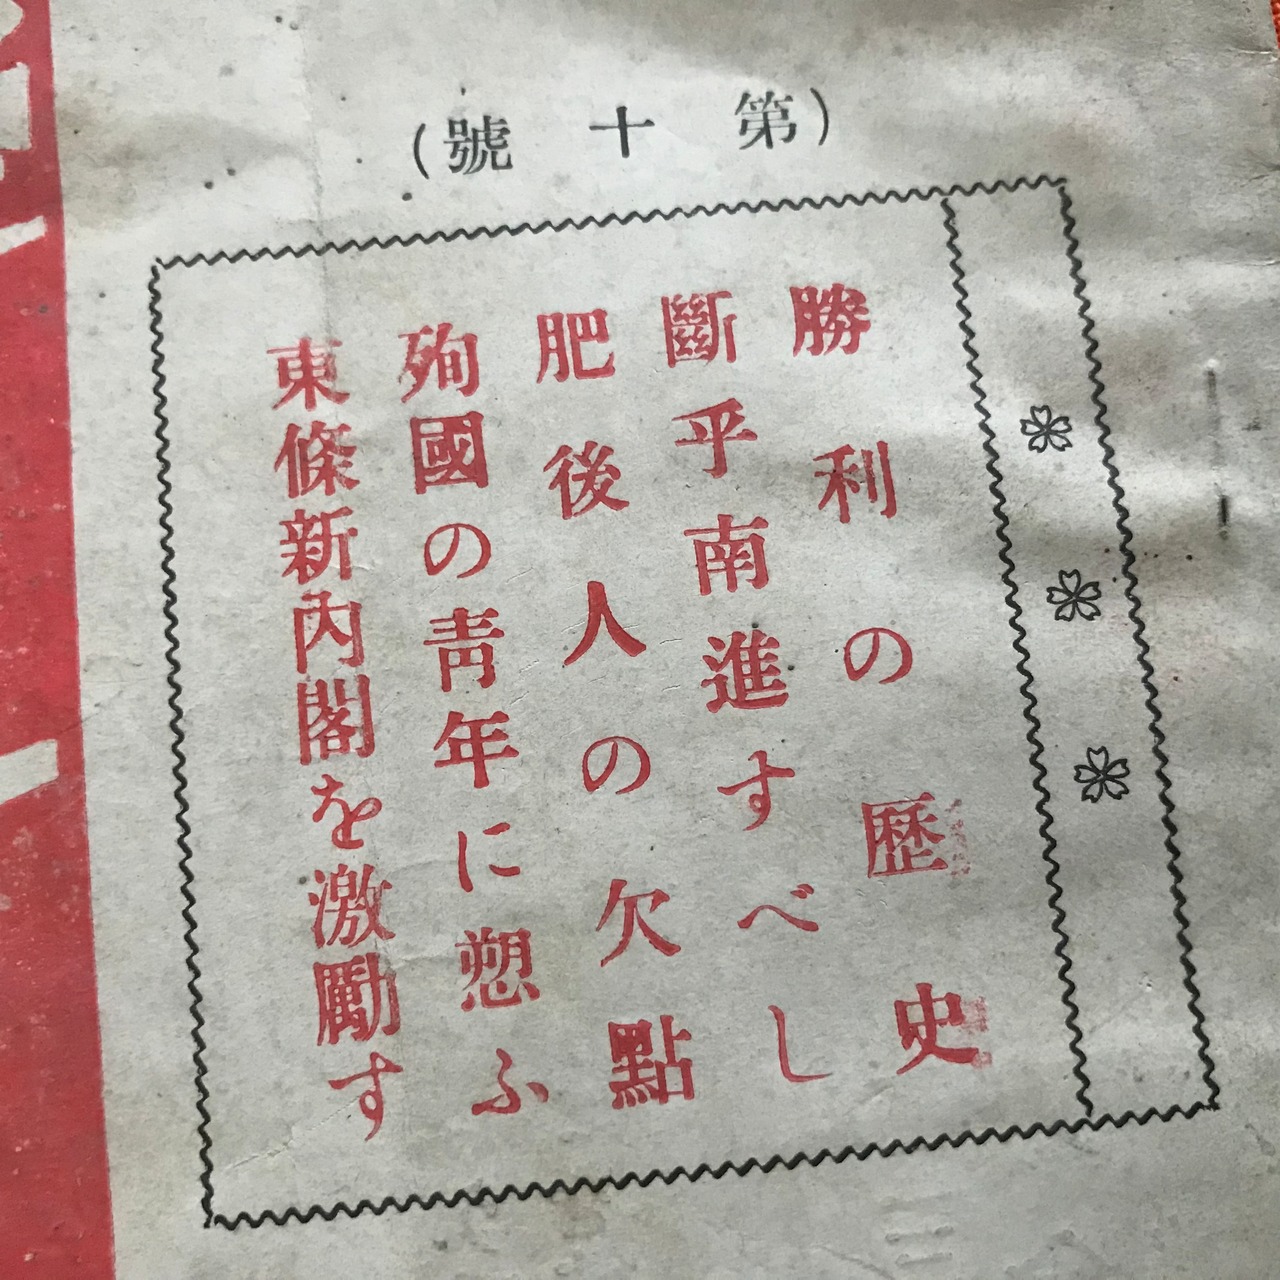 (第十號)
勝利の歴史
斷乎南進すべし
肥後人の欠點
殉國の靑年に愬ふ
東條新內閣を激勵す